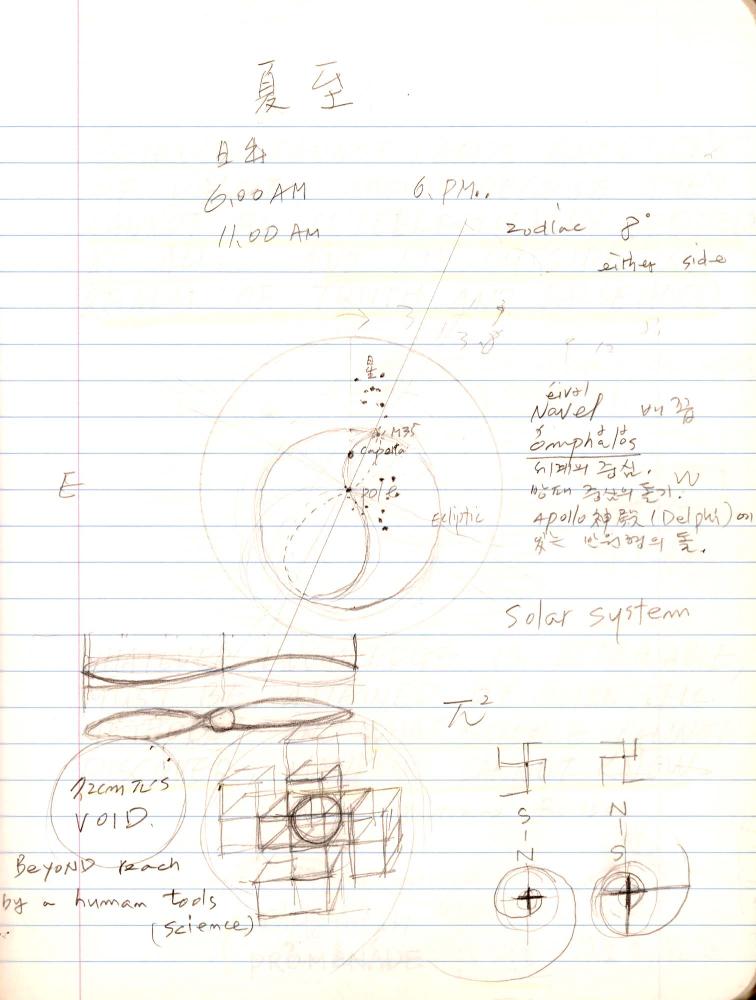 夏至
日出
6.00 AM
6. PM..
11.00 AM
zodiac 8°
either side
星
M35
Capella
pole
Ecliptic
E
W
Navel 배꼽
omphalos
세계의 중심.
방패 중심의 돌기.
Apollo 神殿 (Delphi)에
있는 반원형의 돌.
Solar system
π²
VOID.
BEYOND reach
by a human tools
(science)
S
N
N
S
PROMANADE